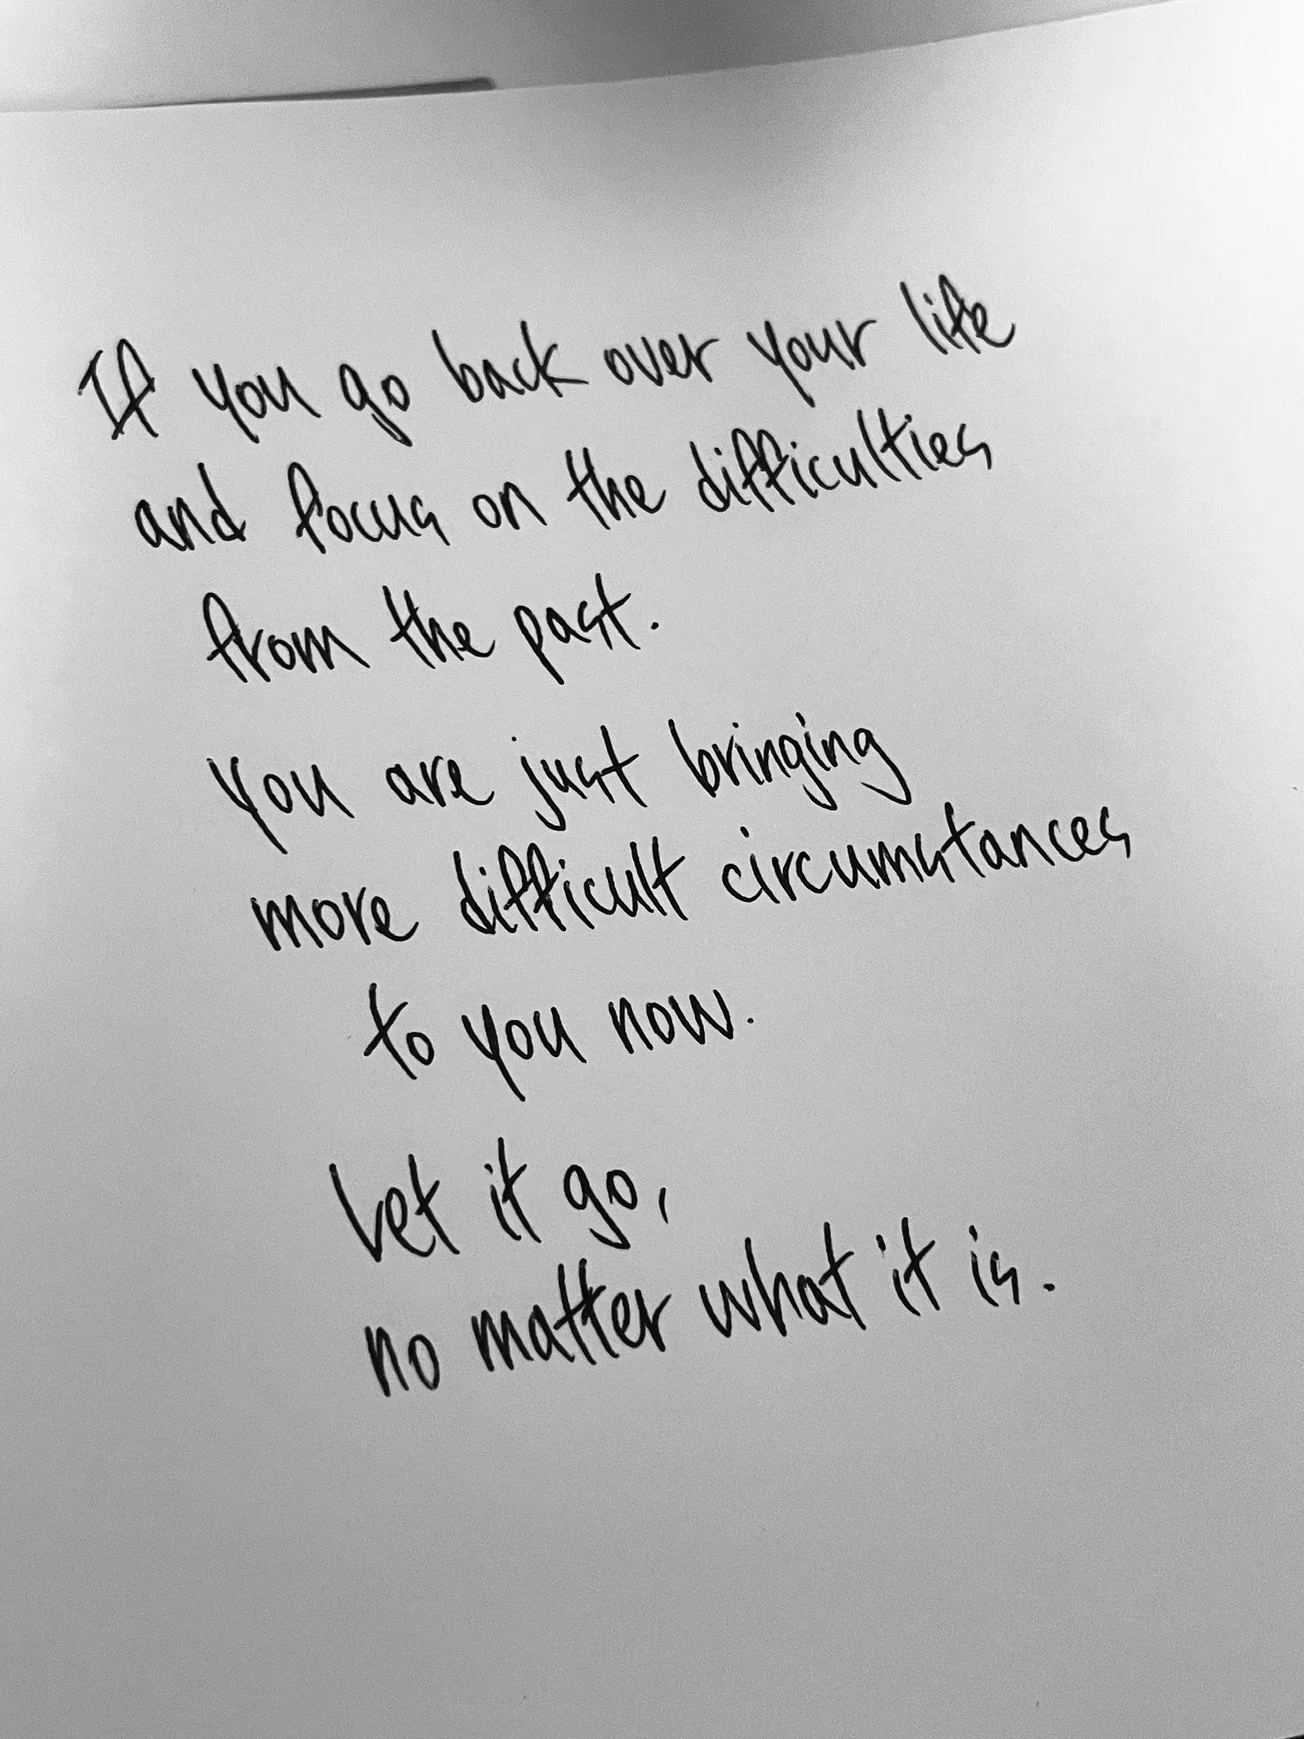 If you go back over your life
and focus on the difficulties
from the past.
You are just bringing
more difficult circumstances
to you now.
Let it go,
no matter what it is.